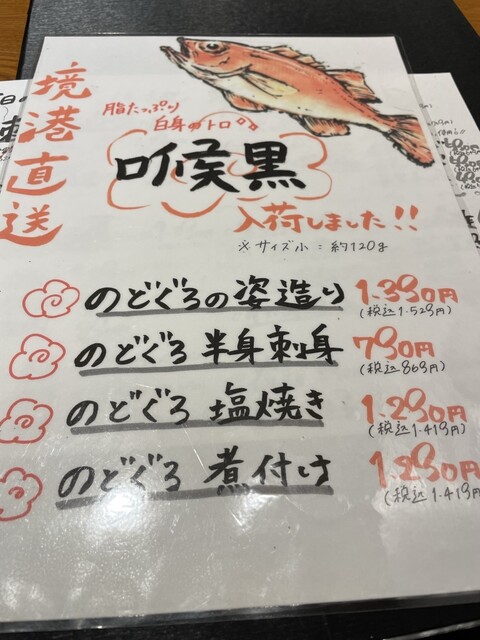 境港直送
脂たっぷり
白身のトロ
喉黒
入荷しました!!
※サイズ小：約120g
のどぐろの姿造り 1.390円
(税込1.529円)
のどぐろ 半身刺身 790円
(税込869円)
のどぐろ 塩焼き 1.290円
(税込1.419円)
のどぐろ 煮付け 1.290円
(税込1.419円)